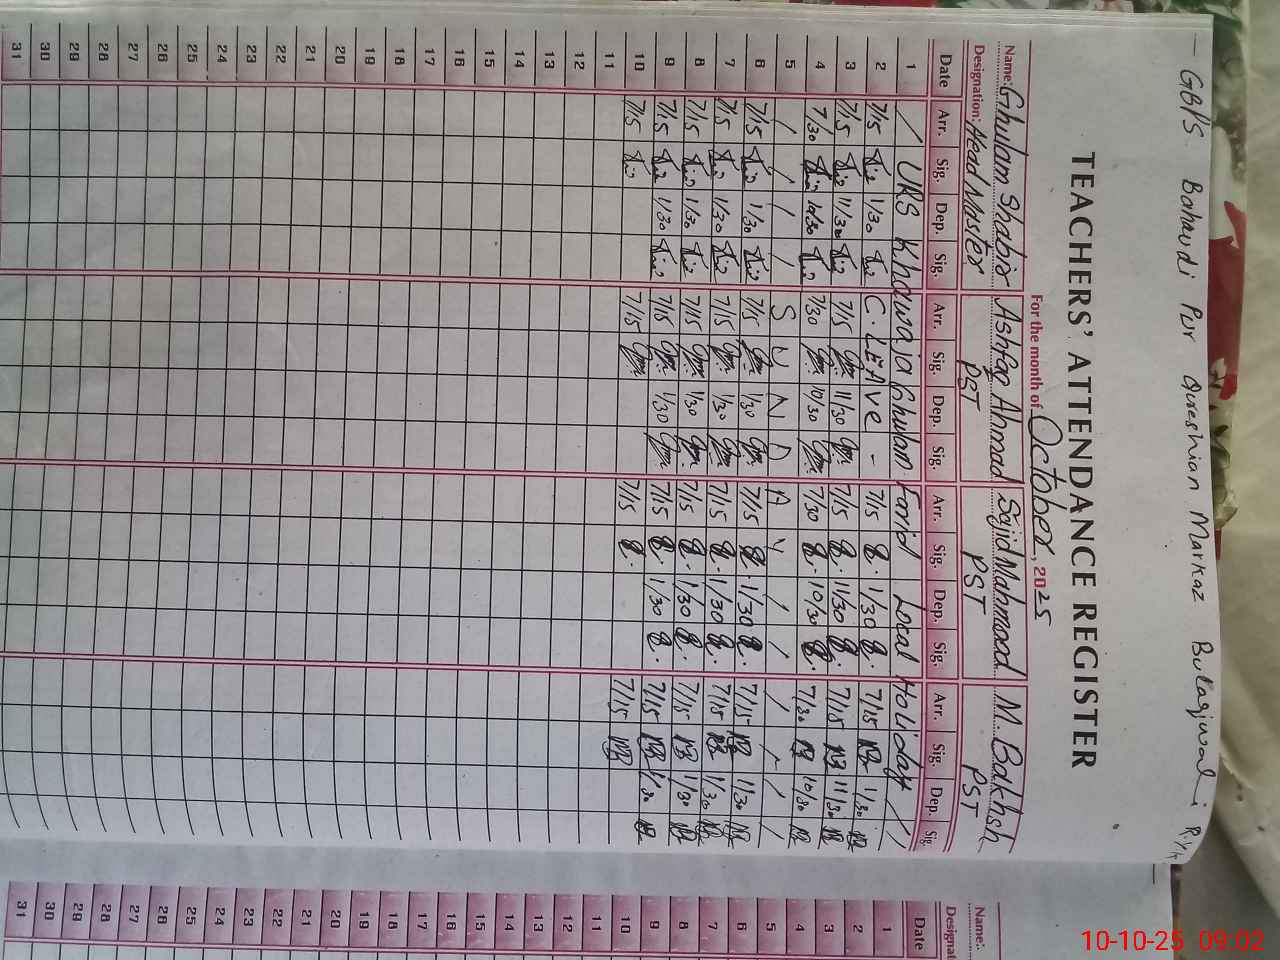 GBPS. Bahaudi Pur Qureshian Markaz
TEACHERS' ATTENDANCE REGISTER
For the month of October, 2025
Name: Ghulam Shabir Ashfaq Ahmad Sajid Mahmood M. Bakhsh
Designation: Head Master PST PST PST
Date Arr. Sig. Dep. Sig. Arr. Sig. Dep. Sig. Arr. Sig. Dep. Sig. Arr. Sig. Dep. Sig.
1 / URS Khawaja Ghulam Farid Local Holiday //
2 7/15 1/30 C. LEAve - 7/15 1/30 7/15 1/30
3 7/15 11/30 7/15 11/30 7/15 11/30 7/15 11/30
4 7/30 10/30 7/30 10/30 7/30 10/30 7/30 10/30
5 / / / / S U N D A Y / / / / / /
6 7/15 1/30 7/15 1/30 7/15 1/30 7/15 1/30
7 7/15 1/30 7/15 1/30 7/15 1/30 7/15 1/30
8 7/15 1/30 7/15 1/30 7/15 1/30 7/15 1/30
9 7/15 1/30 7/15 1/30 7/15 1/30 7/15 1/30
10 7/15 7/15 7/15 7/15
11
12
13
14
15
16
17
18
19
20
21
22
23
24
25
26
27
28
29
30
31
Name:
Designat
Date
1
2
3
4
5
6
7
8
9
10
11
12
13
14
15
16
17
18
19
20
21
22
23
24
25
26
27
28
29
30
31
10-10-25 09:02